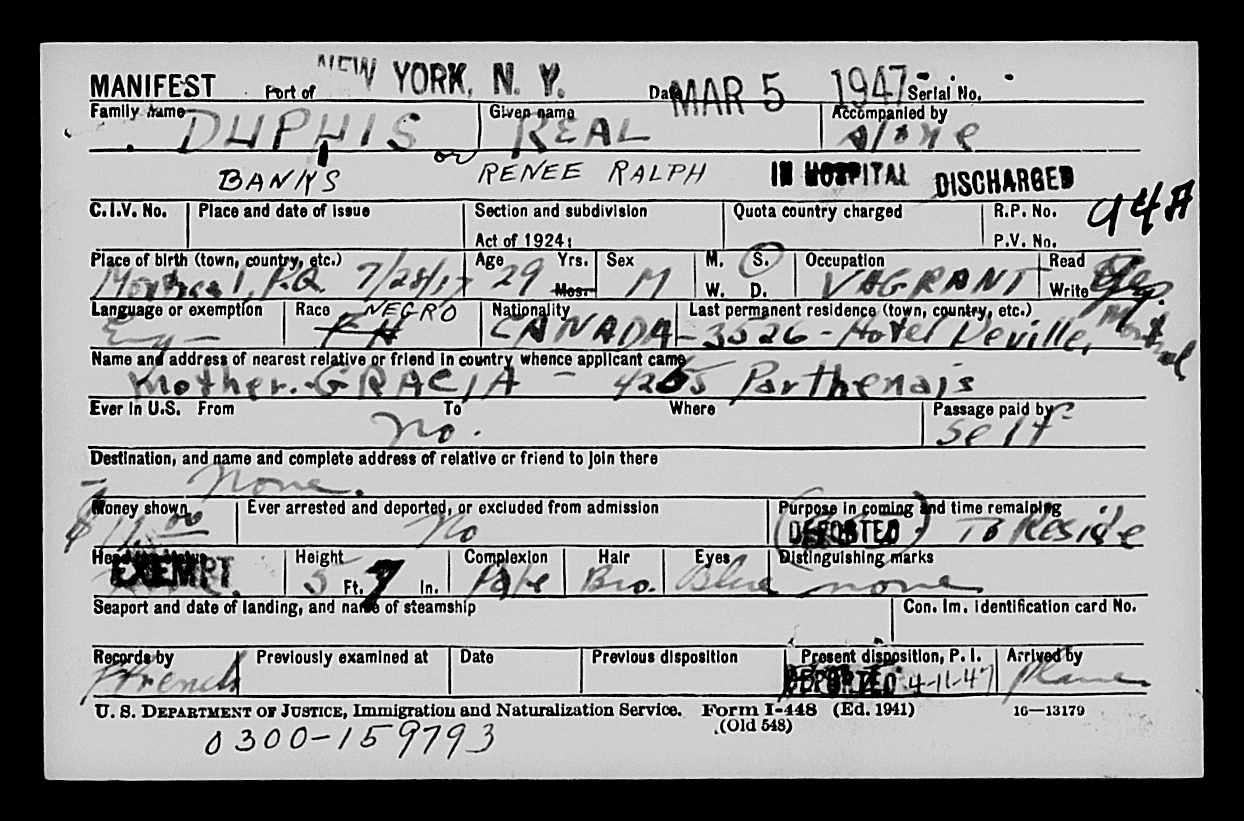 MANIFEST Port of NEW YORK, N. Y. Date MAR 5 1947 Serial No.
Family name DUPUIS Given name REAL Accompanied by Alone
or
BANKS RENEE RALPH IN HOSPITAL DISCHARGED
C.I.V. No. Place and date of issue Section and subdivision Quota country charged R.P. No. 944
Act of 1924: P.V. No.
Place of birth (town, country, etc.) Age Yrs. Sex M. S. Occupation Read
Montreal, P.Q. 7/28/17 29 Mos. M W. D. VAGRANT Write Yes.
Language or exemption Race NEGRO Nationality Last permanent residence (town, country, etc.)
Eng- FH CANADA 3526 - Hotel Deville, Montreal
Name and address of nearest relative or friend in country whence applicant came
Mother. GRACIA - 4265 Parthenais
Ever in U.S. From To Where Passage paid by
No. Self
Destination, and name and complete address of relative or friend to join there
None.
Money shown Ever arrested and deported, or excluded from admission Purpose in coming and time remaining
$ 11.00 No DEPORTED To Reside
Head tax status Height Complexion Hair Eyes Distinguishing marks
EXEMPT 5 Ft. 7 In. Pale Bro. Blue none
Seaport and date of landing, and name of steamship Con. Im. Identification card No.
Records by Previously examined at Date Previous disposition Present disposition, P. I. Arrived by
French DEPORTED 4-11-47 Plane
U. S. DEPARTMENT OF JUSTICE, Immigration and Naturalization Service. Form I-448 (Ed. 1941) 16—13179
(Old 548)
0300-159793